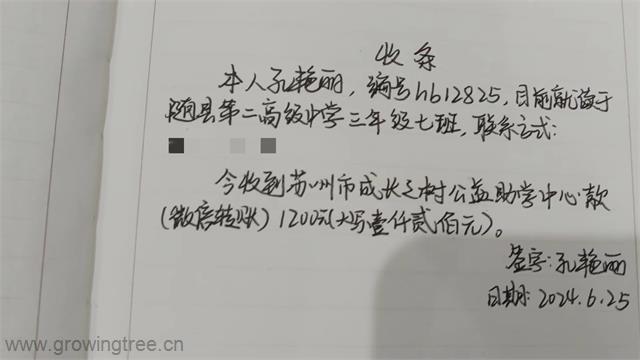 收条
本人孔艳丽，编号hb12825，目前就读于
随县第二高级中学三年级七班，联系方式：
今收到苏州市成长之树公益助学中心款
(微信转账)1200元(大写壹仟贰佰元)。
签字：孔艳丽
日期：2024.6.25
www.growingtree.cn